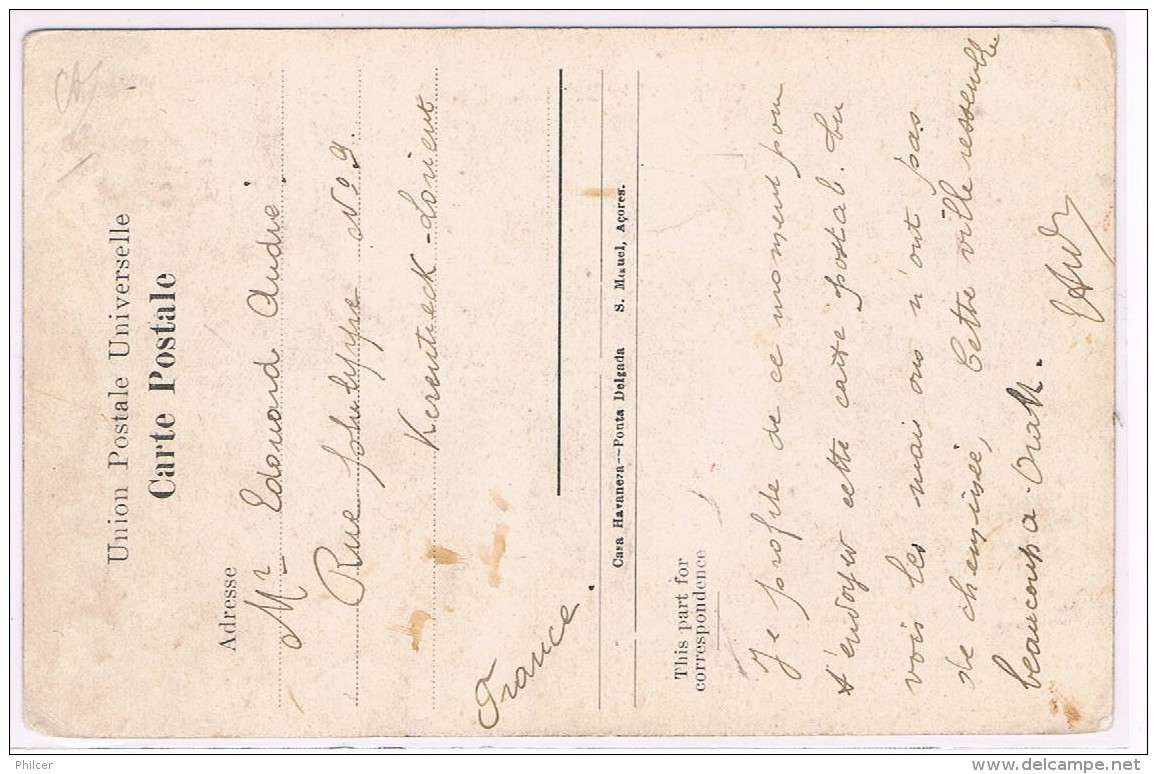 Union Postale Universelle
Carte Postale
Adresse
Mr Edouard André
Rue N° 9.
Kerentreck-Lorient
France.
Casa Havaneza—Ponta Delgada S. Miguel, Açores.
This part for
correspondence
Je profite de ce moment pour
t'envoyer cette carte postal. tu
vois les mais ons n'ont pas
de cheminée, Cette ville ressemble
beaucoup a
Philcer
delcampe.net